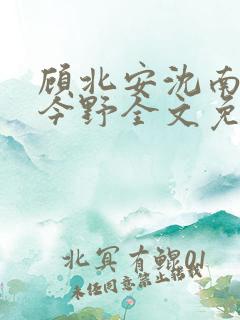 顾北安沈南
今野全文免
北冥有鲲01
未任同意禁止搭载